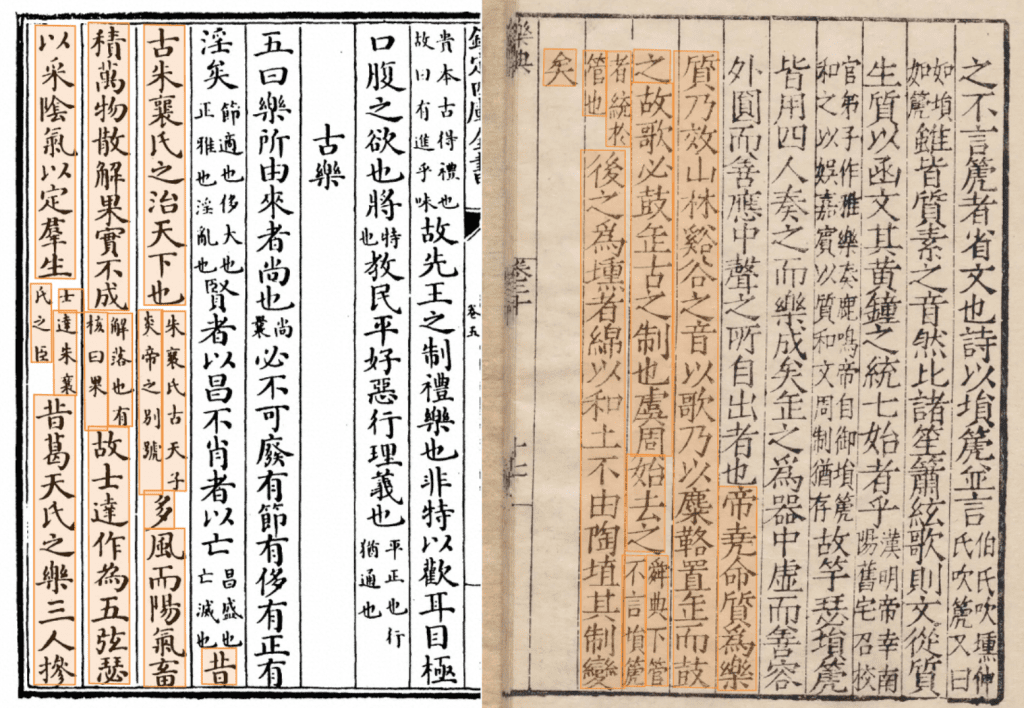 之不言箎者省文也詩以塤箎並言伯氏吹壎仲氏吹箎又曰
如塤如箎雖皆質素之音然比諸笙簫絃歌則文從質
生質以函文其黃鐘之統七始者乎漢明帝幸南陽舊宅召校
官弟子作雅樂奏鹿鳴帝自御塤箎和之以娛嘉賓以質和文周制猶存故竽瑟塤箎
皆用四人奏之而樂成矣缶之為器中虛而善容
外圓而善應中聲之所自出者也帝堯命質為樂
質乃效山林谿谷之音以歌乃以麋䩭置缶而鼓
之故歌必鼓缶古之制也虞周始去之舜典下管不言塤箎
者統於管也後之為壎者綿以和土不由陶埴其制變
矣
樂典
卷五
貴本古得禮也故曰有進乎味故先王之制禮樂也非特以歡耳目極
口腹之欲也將特也教民平好惡行理義也平正也行猶通也
古樂
五曰樂所由來者尚也尚曩必不可廢有節有侈有正有
淫矣節適也侈大也正雅也淫亂也賢者以昌不肖者以亡昌盛也亡滅也昔
古朱襄氏之治天下也朱襄氏古天子炎帝之別號多風而陽氣畜
積萬物散解果實不成解落也有核曰果故士達作為五弦瑟
以采陰氣以定羣生士達朱襄氏之臣昔葛天氏之樂三人摻